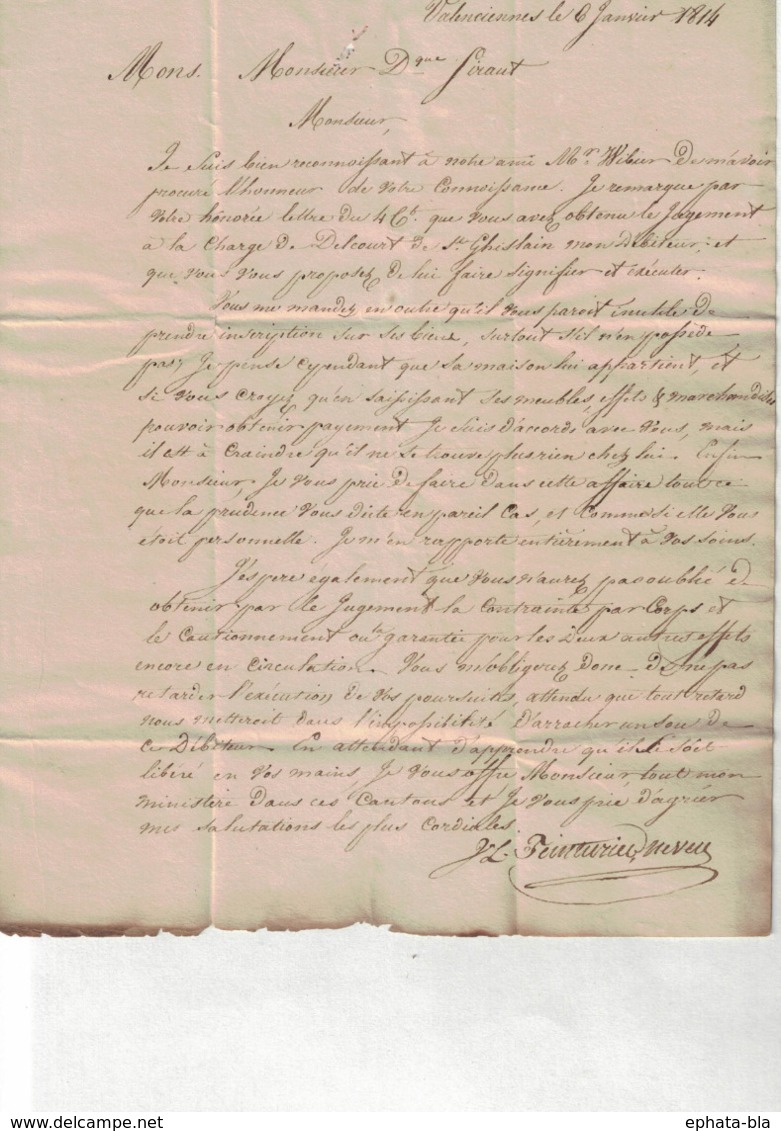 Valenciennes le 6 Janvier 1814
Mons. Monsieur Dque Siraut
Monsieur,
Je suis bien reconnoissant à notre ami Mr. Wibier de m'avoir
procuré l'honneur de votre connoissance. Je remarque par
votre honorée lettre du 4 Ct. que vous avez obtenu le Jugement
à la charge de Delcourt de St Ghislain mon Débiteur; et
que vous vous proposez de lui faire signifier et exécuter.
Vous me mandez en outre qu'il vous paroit inutile de
prendre inscription sur ses biens, surtout s'il n'en possède
pas; Je pense cependant que sa maison lui appartient, et
si vous croyez qu'en saisissant ses meubles, effets & marchandises
pouvoir obtenir payement Je suis d'accords avec vous, mais
il est à craindre qu'il ne se trouve plus rien chez lui. Enfin
Monsieur, Je vous prie de faire dans cette affaire tout ce
que la prudence vous dicte en pareil cas, et comme si elle vous
étoit personnelle. Je m'en rapporte entièrement à vos soins.
J'espère également que vous n'aurez pas oublié d
obtenir par le Jugement la contrainte par corps et
le cautionnement ou la garantie pour les deux autres effets
encore en circulation. Vous m'obligerez donc de ne pas
retarder l'exécution de vos poursuites, attendu que tout retard
nous metteroit dans l'impossibilité d'arracher un sou de
ce Débiteur. En attendant d'apprendre qu'il se soit
libéré en vos mains, Je vous offre Monsieur, tout mon
ministère dans ces cantons et Je vous prie d'agréer
mes salutations les plus cordiales.
JL. Teinturier neveu
ephata-bla